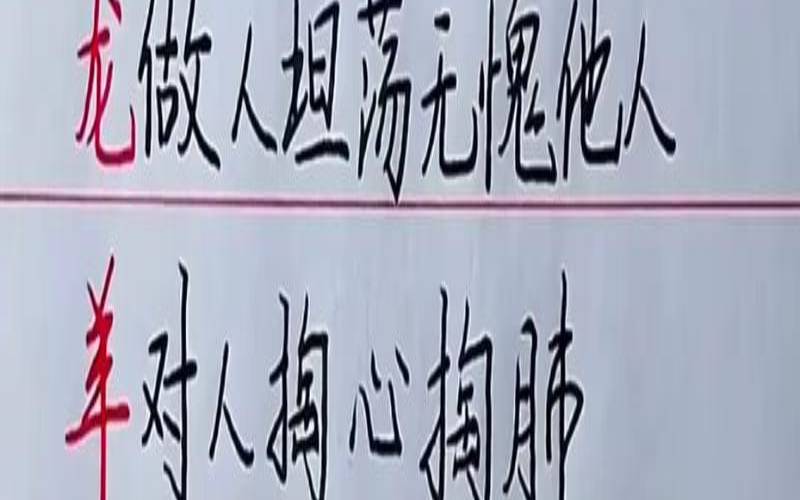 龙做人坦荡无愧他人
羊对人掏心掏肺